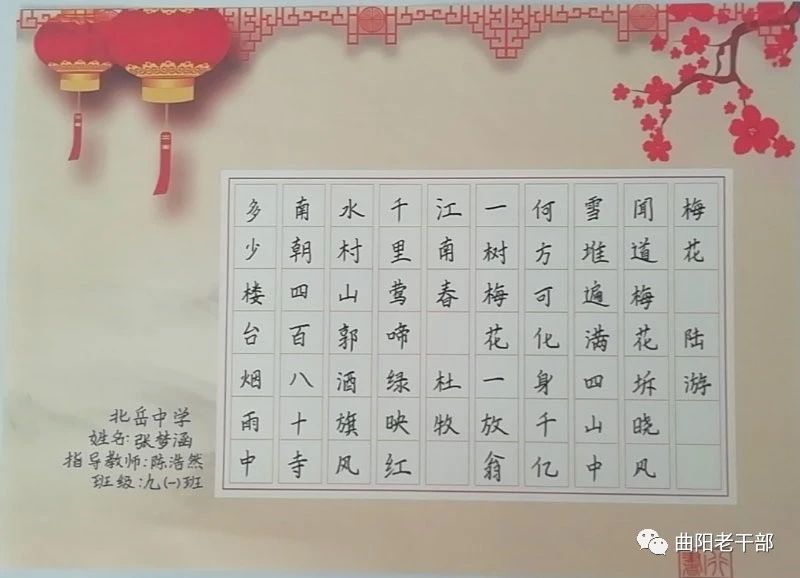 梅花 陆游
闻道梅花坼晓风
雪堆遍满四山中
何方可化身千亿
一树梅花一放翁
江南春 杜牧
千里莺啼绿映红
水村山郭酒旗风
南朝四百八十寺
多少楼台烟雨中
北岳中学
姓名:张梦涵
指导教师:陈浩然
班级:九(一)班
曲阳老干部